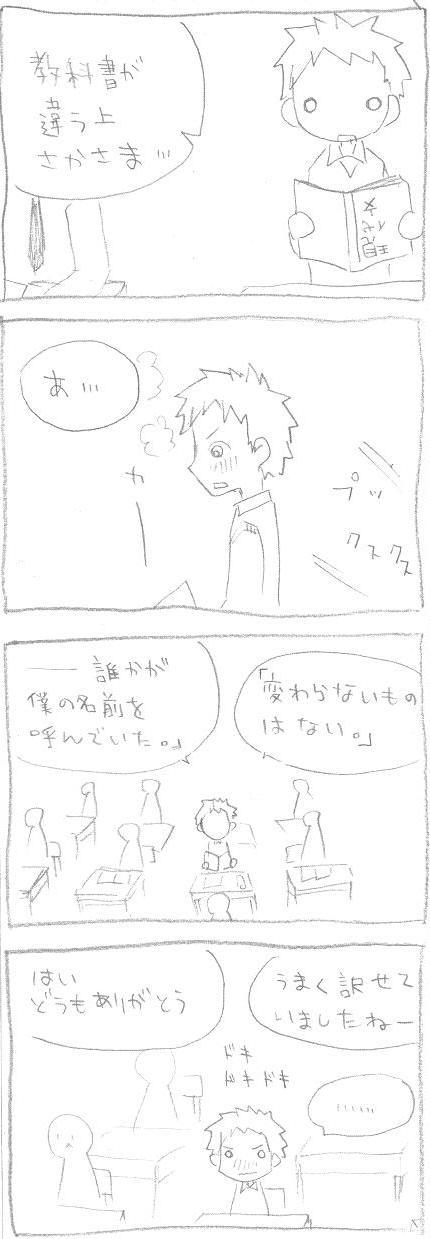 教科書が
違う上
さかさま…
あ…
カ
ー
プッ
クスクス
「変わらないもの
はない。」
── 誰かが
僕の名前を
呼んでいた。」
うまく訳せて
いましたねー
はい
どうもありがとう
ドキ
ドキドキ
……